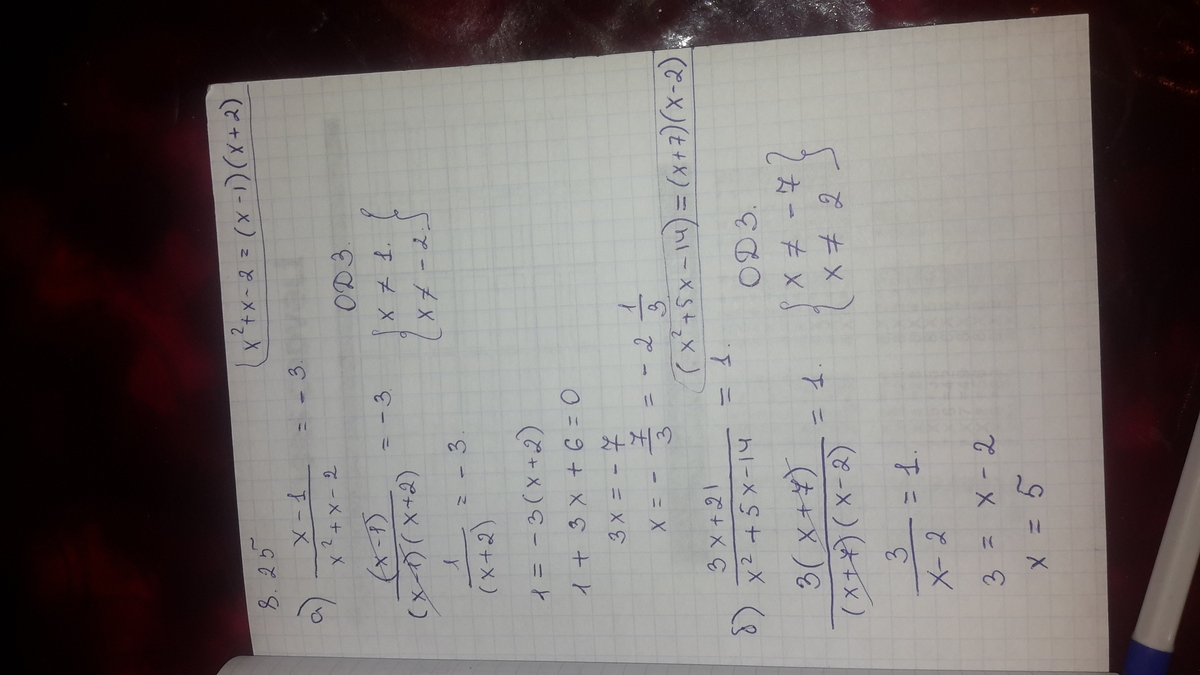 8.25
x² + x - 2 = (x - 1)(x + 2)
а) (x - 1)/(x² + x - 2) = - 3.
ОДЗ.
(x - 1)/((x - 1)(x + 2)) = -3
{ x ≠ 1. }
{ x ≠ - 2. }
1/(x + 2) = - 3.
1 = - 3(x + 2)
1 + 3x + 6 = 0
3x = - 7
x = - 7/3 = - 2 1/3
(x² + 5x - 14) = (x + 7)(x - 2)
б) (3x + 21)/(x² + 5x - 14) = 1.
ОДЗ.
3(x + 7)/((x + 7)(x - 2)) = 1.
{ x ≠ - 7 }
{ x ≠ 2 }
3/(x - 2) = 1.
3 = x - 2
x = 5